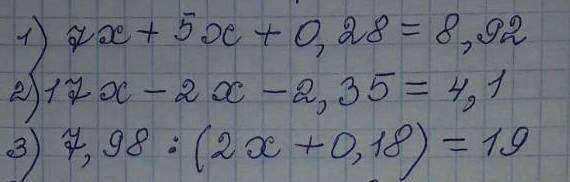 1) 7x + 5x + 0,28 = 8,92
2) 17x - 2x - 2,35 = 4,1
3) 7,98 : (2x + 0,18) = 19